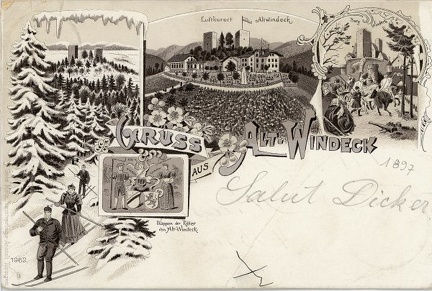 Luftkurort Altwindeck
Burg
GRUSS
AUS
ALT-WINDECK
Wappen der Ritter
von Alt-Windeck
1897
Salut Dicker
1962